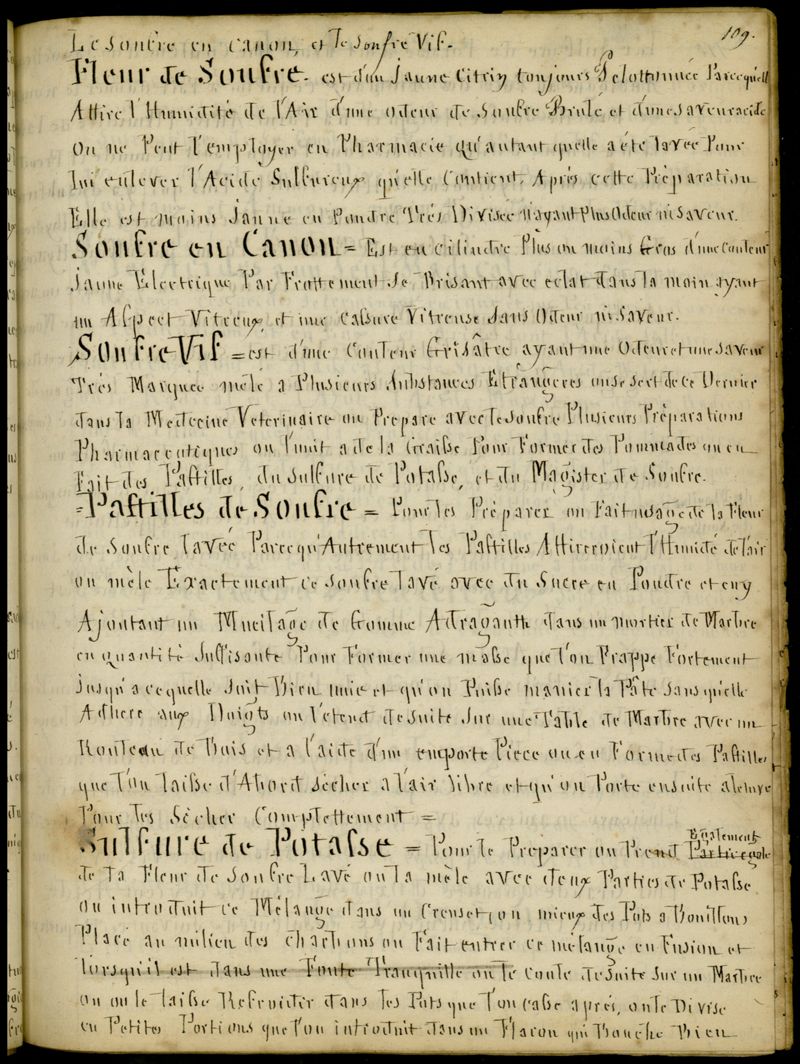 109.
Le Soufre en Canon, et le Soufre Vif.
Fleur de Soufre. est d'un Jaune Citrin toujours Pelottonnée Parcequ'ell
Attire l'Humidité de l'Air d'une odeur de Soufre Brulé et d'une saveur acide
On ne Peut l'employer en Pharmacie qu'autant quelle a été lavée Pour
lui enlever l'Acide Sulfureux qu'elle Contient, Après cette Préparation
Elle est moins Jaune en Poudre Très Divisée n'ayant Plus Odeur ni Saveur.
Soufre en Canon = Est en cilindre Plus ou moins Gros d'une Couleur
Jaune Electrique Par Frottement se Brisant avec eclat dans la main ayant
un Aspect Vitreux et une Cassure Vitreuse Sans Odeur ni Saveur.
Soufre Vif = est d'une Couleur Grisâtre ayant une Odeur et une Saveur
Très Marquée mélé a Plusieurs Substances Etrangères on se sert de ce Dernier
dans la Medecine Veterinaire on Prepare avec le Soufre Plusieurs Préparations
Pharmaceutiques on l'unit a de la Graisse Pour Former des Pommades on en
Fait des Pastilles, du Sulfure de Potasse, et du Magister de Soufre.
=Pastilles de Soufre = Pour les Préparer on Fait usage de la Fleur
de Soufre lavée Parcequ'Autrement les Pastilles Attireroient l'Humidé de l'air
on mèle Exactement ce Soufre lavé avec du Sucre en Poudre et en y
Ajoutant un Mucilage de Gomme Adraganth dans un mortier de Marbre
en quantité Suffisante Pour Former une masse que l'on Frappe Fortement
Jusqu'a cequelle Soit Bien unie et qu'on Puisse manier la Pâte sans qu'elle
Adhere aux Doigts on l'etend de suite sur une Table de Marbre avec un
Rouleau de Bois et a l'aide d'un emporte Piece on en Forme des Pastilles
que l'on laisse d'Abord sécher a l'air libre et qu'on Porte ensuite a l'etuve
Pour les Sècher Complettement =
Sulfure de Potasse = Pour le Preparer on Prend Egalement
de la Fleur de Soufre Lavé on la mèle avec deux Parties de Potasse
on introduit ce Mélange dans un Creuset (ou mieux des Pots a Bouillons
Place au milieu des charbons on Fait entrer ce mélange en Fusion et
lorsqu'il est dans une Fonte Tranquille on le Coule de suite sur un Marbre
on on le laisse Refroidir dans les Pots que l'on casse après, on le Divise
en Petites Portions que l'on introduit dans un Flacon qui Bouche Bien